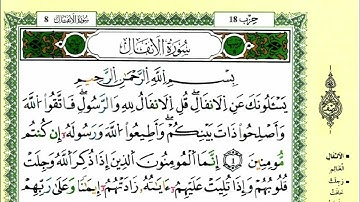 حزب 18
سورة الأنفال 8
سُورَةُ الْأَنْفَالِ
بِسْمِ اللَّهِ الرَّحْمَٰنِ الرَّحِيمِ
يَسْـَٔلُونَكَ عَنِ الْأَنفَالِ قُلِ الْأَنفَالُ لِلَّهِ وَالرَّسُولِ فَاتَّقُوا اللَّهَ
وَأَصْلِحُوا ذَاتَ بَيْنِكُمْ وَأَطِيعُوا اللَّهَ وَرَسُولَهُ إِن كُنتُم
مُّومِنِينَ ۝١ إِنَّمَا الْمُومِنُونَ الَّذِينَ إِذَا ذُكِرَ اللَّهُ وَجِلَتْ
قُلُوبُهُمْ وَإِذَا تُلِيَتْ عَلَيْهِمُ ءَايَٰتُهُ زَادَتْهُمُ إِيمَٰنًا وَعَلَىٰ رَبِّهِمْ
الأنفال
الغنائم
وجلت